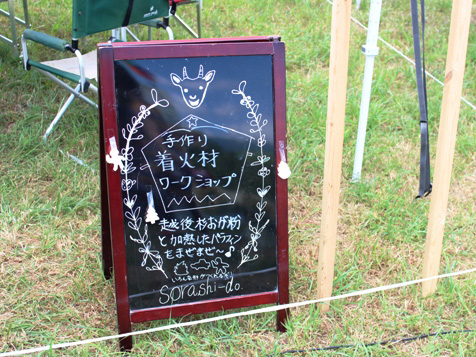 手作り
着火材
ワークショップ
越後杉おが粉
と加熱したパラフィン
をまぜまぜ〜♪
sprashi-do.